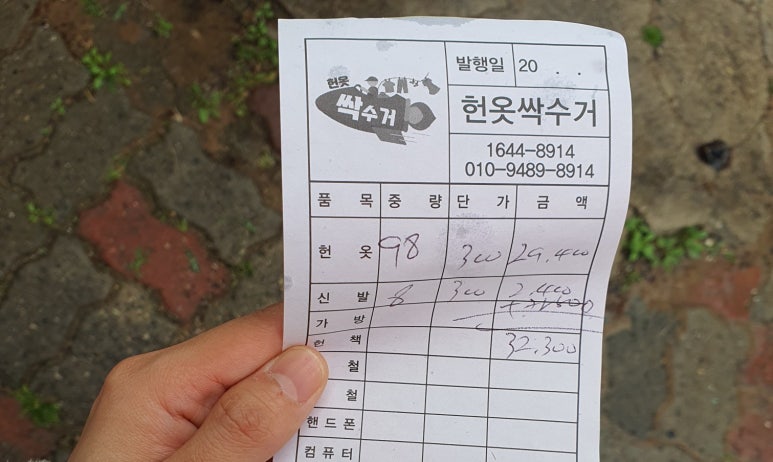 헌옷
싹수거
발행일 20 . .
헌옷싹수거
1644-8914
010-9489-8914
품 목 중 량 단 가 금 액
헌 옷 98 300 29,400
신 발 8 300 2,400
가 방
헌 책 32,300
철
철
핸드폰
컴퓨터